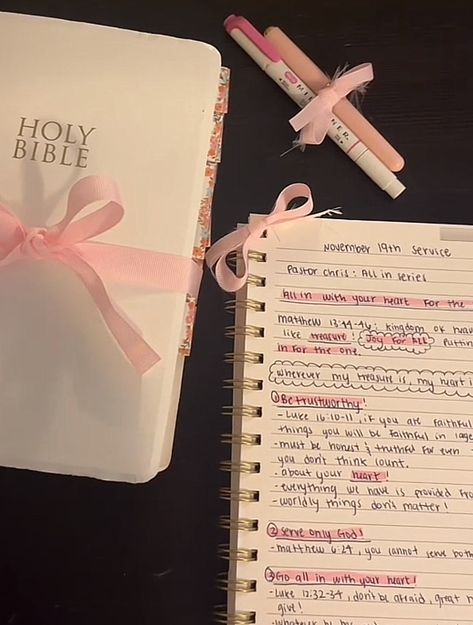 HOLY
BIBLE
November 19th service
Pastor Chris: All in series
All in with your heart for the
matthew 13:44-46: kingdom of
like treasure! Joy for all putting
in for the one.
wherever my treasure is, my heart
① Be trustworthy!
- Luke 16:10-11, if you are faithful
things you will be faithful in
- must be honest & truthful for even
you don't think count.
- about your heart!
- everything we have is provided
- worldly things don't matter!
② serve only God!
- matthew 6:24, you cannot serve both
③ Go all in with your heart!
- Luke 12:32-34, don't be afraid, great
give!